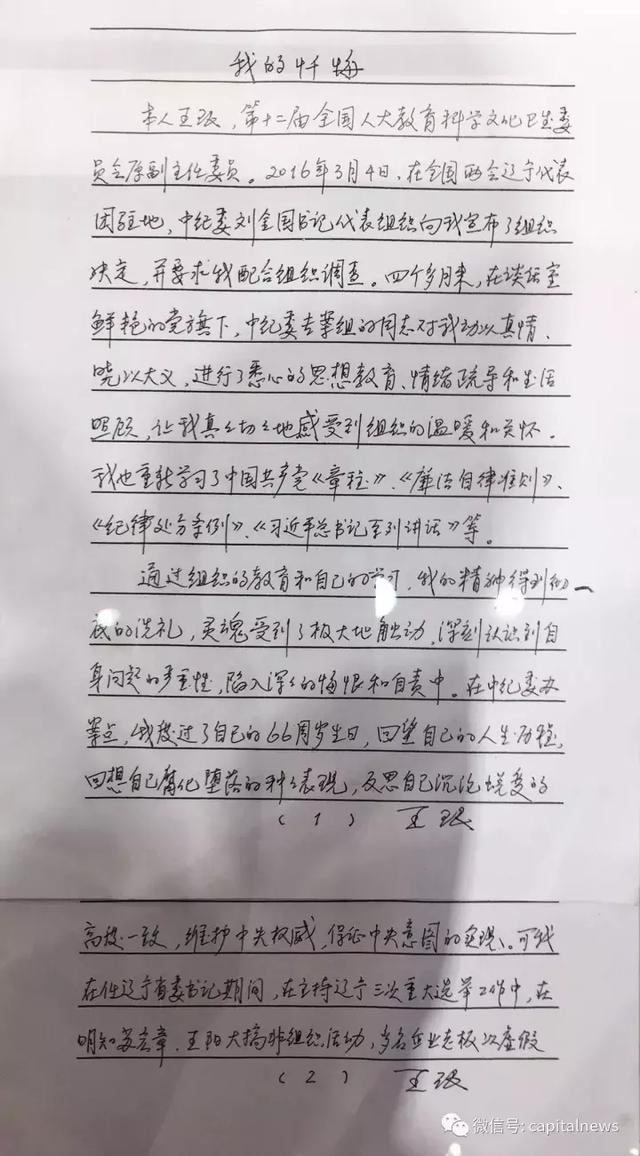 我的忏悔
本人王珉，第十二届全国人大教育科学文化卫生委
员会原副主任委员。2016年3月4日，在全国两会辽宁代表
团驻地，中纪委刘金国书记代表组织向我宣布了组织
决定，并要求我配合组织调查。四个多月来，在谈话室
鲜艳的党旗下，中纪委专案组的同志对我动以真情、
晓以大义，进行了悉心的思想教育、情绪疏导和生活
照顾，让我真真切切地感受到组织的温暖和关怀。
我也重新学习了中国共产党《章程》、《廉洁自律准则》、
《纪律处分条例》、《习近平总书记系列讲话》等。
通过组织的教育和自己的学习，我的精神得到彻
底的洗礼，灵魂受到了极大地触动，深刻认识到自
身问题的严重性，陷入深深的悔恨和自责中。在中纪委办
案点，我度过了自己的66周岁生日，回望自己的人生历程，
回想自己腐化堕落的种种表现，反思自己沉沦蜕变的
（1） 王珉
高度一致，维护中央权威，保证中央意图的实现、。可我
在任辽宁省委书记期间，在主持辽宁三次重大选举工作中，在
明知苏宏章、王阳大搞非组织活动，多名企业老板以虚假
（2） 王珉
微信号: capitalnews